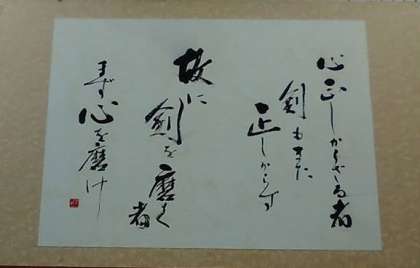 心正しからざる者
剣もまた
正しからず
故に
剣を磨く者
まず心を磨け